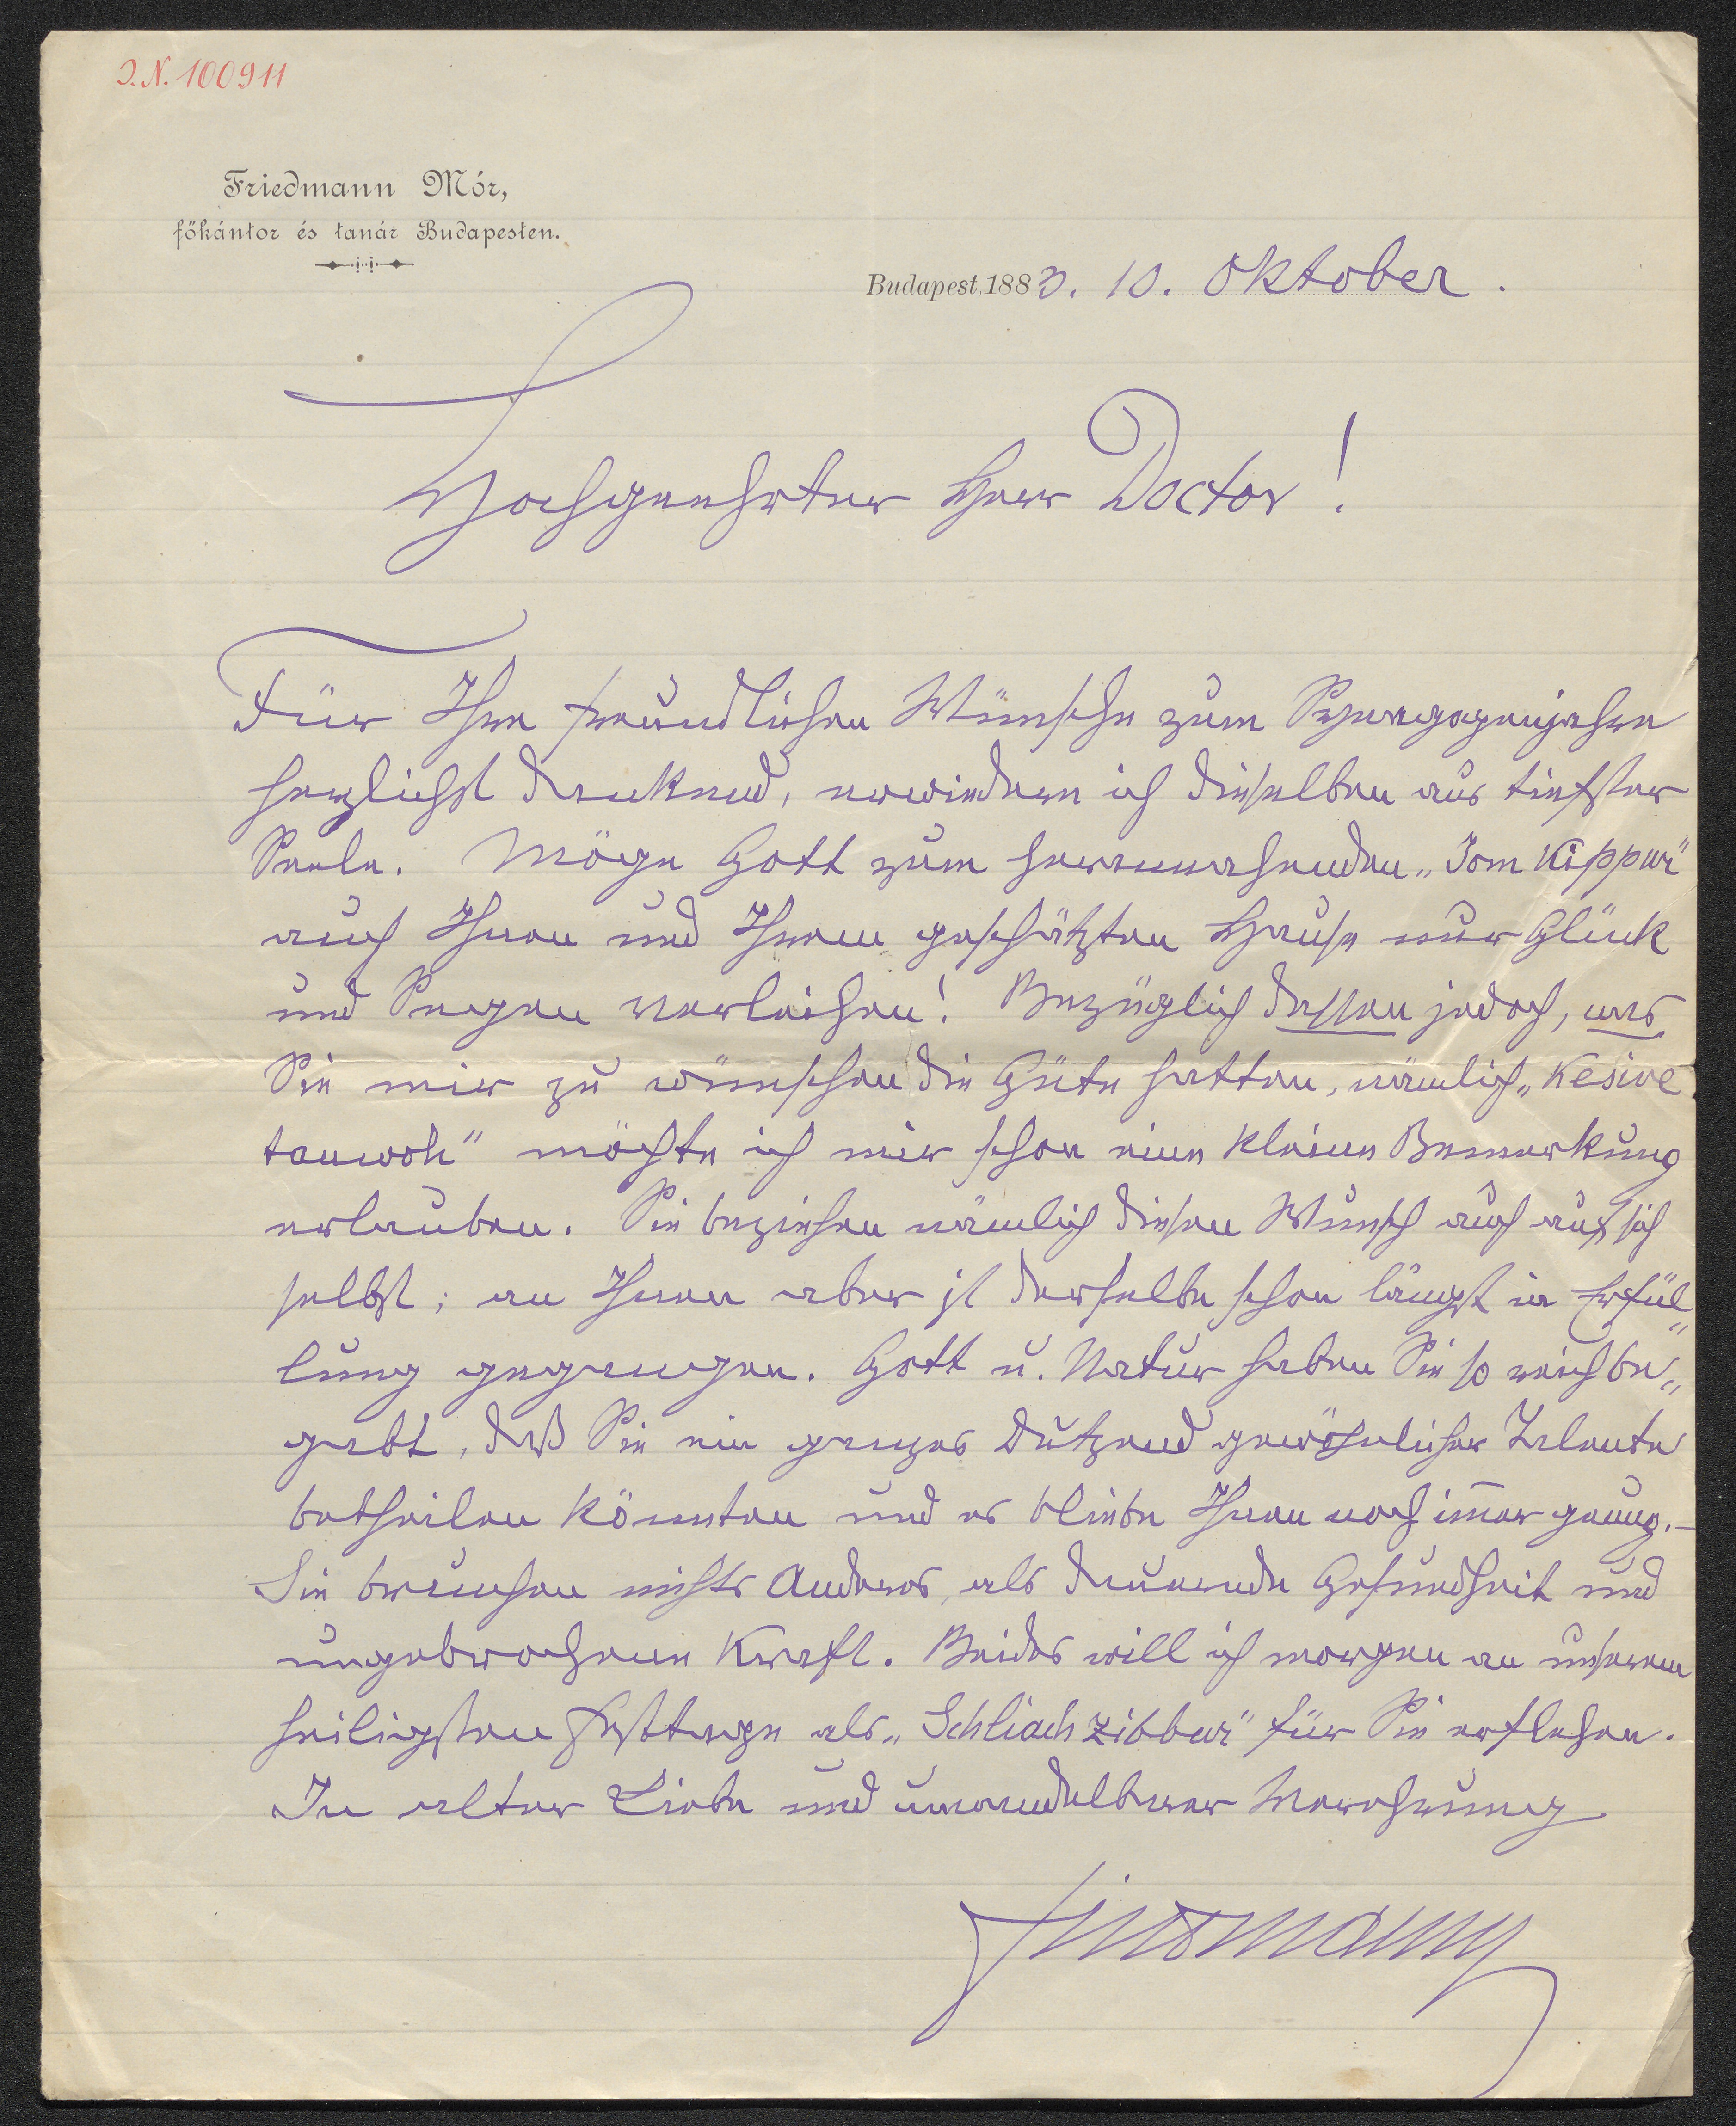 J.N. 100911
Friedmann Mór,
főkántor és tanár Budapesten.
Budapest, 1883. 10. Oktober.
Hochgeehrter Herr Doctor!
Für Ihre freundlichen Wünsche zum Synagogenjahre
herzlichst dankend, erwiedere ich dieselben aus tiefster
Seele. Möge Gott zum herannahenden „Jom Kippur"
auch Ihnen und Ihrem geschätzten Hause nur Glück
und Segen verleihen! Bezüglich dessen jedoch, was
Sie mir zu wünschen die Güte hatten, nämlich „Kesive
tauwoh" möchte ich mir schon eine kleine Bemerkung
erlauben. Sie beziehen nämlich diesen Wunsch auch auf sich
selbst; an Ihnen aber ist derselbe schon längst in Erfül„
lung gegangen. Gott u. Natur haben Sie so reich be„
gabt, daß Sie ein ganzes Dutzend gewöhnlicher Talente
betheilen könnten und es bliebe Ihnen noch im̄er genug.–
Sie brauchen nichts Anderes, als dauernde Gesundheit und
ungebrochene Kraft. Beides will ich morgen an unserem
heiligsten Festtage als „Schliach zibbur" für Sie erflehen.
In alter Liebe und unwandelbarer Verehrung
Friedmann